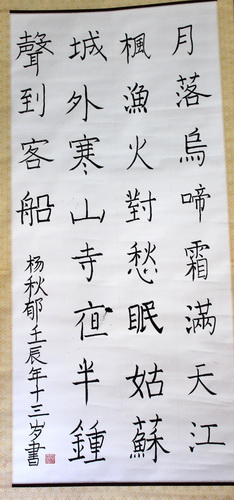 月落烏啼霜滿天江
楓漁火對愁眠姑蘇
城外寒山寺夜半鍾
聲到客船
杨秋郁壬辰年十三岁書